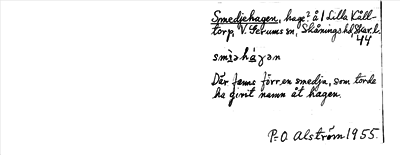 Smedjehagen, hage? å 1 Lilla Kåll-
torp, V. Gerums sn, Skånings hd, Skar. l.
44
smiəháɣən
Där fanns förr en smedja, som torde
ha givit namn åt hagen.
P-O. Alström 1955.